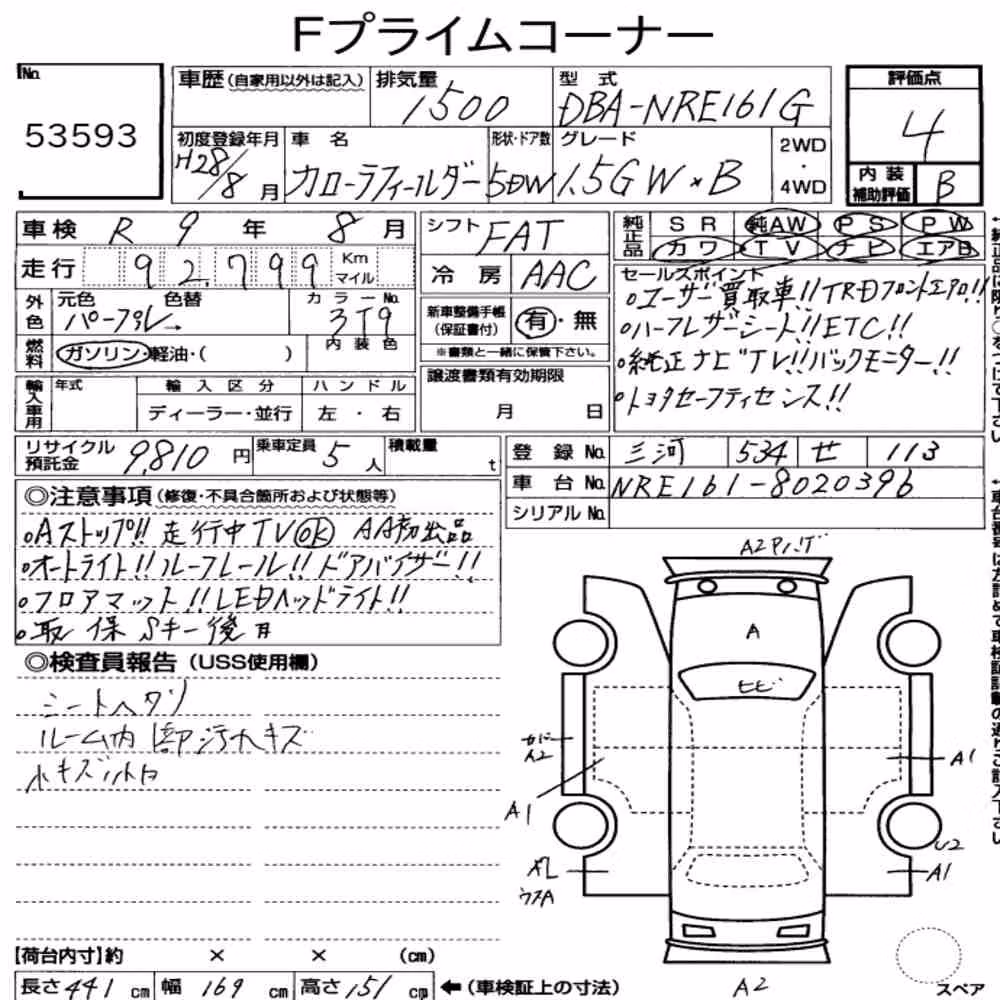 Fプライムコーナー
No.
53593
車歴(自家用以外は記入)
排気量
1500
型式
DBA-NRE161G
評価点
4
初度登録年月
H28/8月
車名
カローラフィールダー
形状・ドア数
5DW
グレード
1.5G W×B
2WD
・
4WD
内装
補助評価
B
車検 R 9 年 8 月
シフト
FAT
純正品
SR 純AW PS PW
カワ TV ナビ エアB
走行 92,799 Km
マイル
冷房 AAC
セールスポイント
。ユーザー買取車!!TRDフロントエアロ!!
。ハーフレザーシート!!ETC!!
。純正ナビTV!!バックモニター!!
。トヨタセーフティセンス!!
外色
元色 色替
パープル→
カラーNo.
3T9
新車整備手帳
(保証書付)
有・無
※書類と一緒に保管下さい。
燃料
ガソリン・軽油・( )
内装色
輸入車用
年式
輸入区分
ハンドル
ディーラー・並行
左・右
譲渡書類有効期限
月 日
リサイクル
預託金
9,810 円
乗車定員 5 人
積載量 t
登録No. 三河 534 せ 113
車台No. NRE161-8020396
シリアルNo.
◎注意事項(修復・不具合箇所および状態等)
。Aストップ!! 走行中TV OK AA初出品
。オートライト!!ルーフレール!!ドアバイザー!!
。フロアマット!!LEDヘッドライト!!
。取 保 Sキー後日
◎検査員報告(USS使用欄)
シートヘタリ
ルーム内
A
ヒビ
A2
A1
A1
U2
A1
A2
スペア
【荷台内寸】約 × × (cm)
長さ 441 cm 幅 169 cm 高さ 151 cm ←(車検証上の寸法)